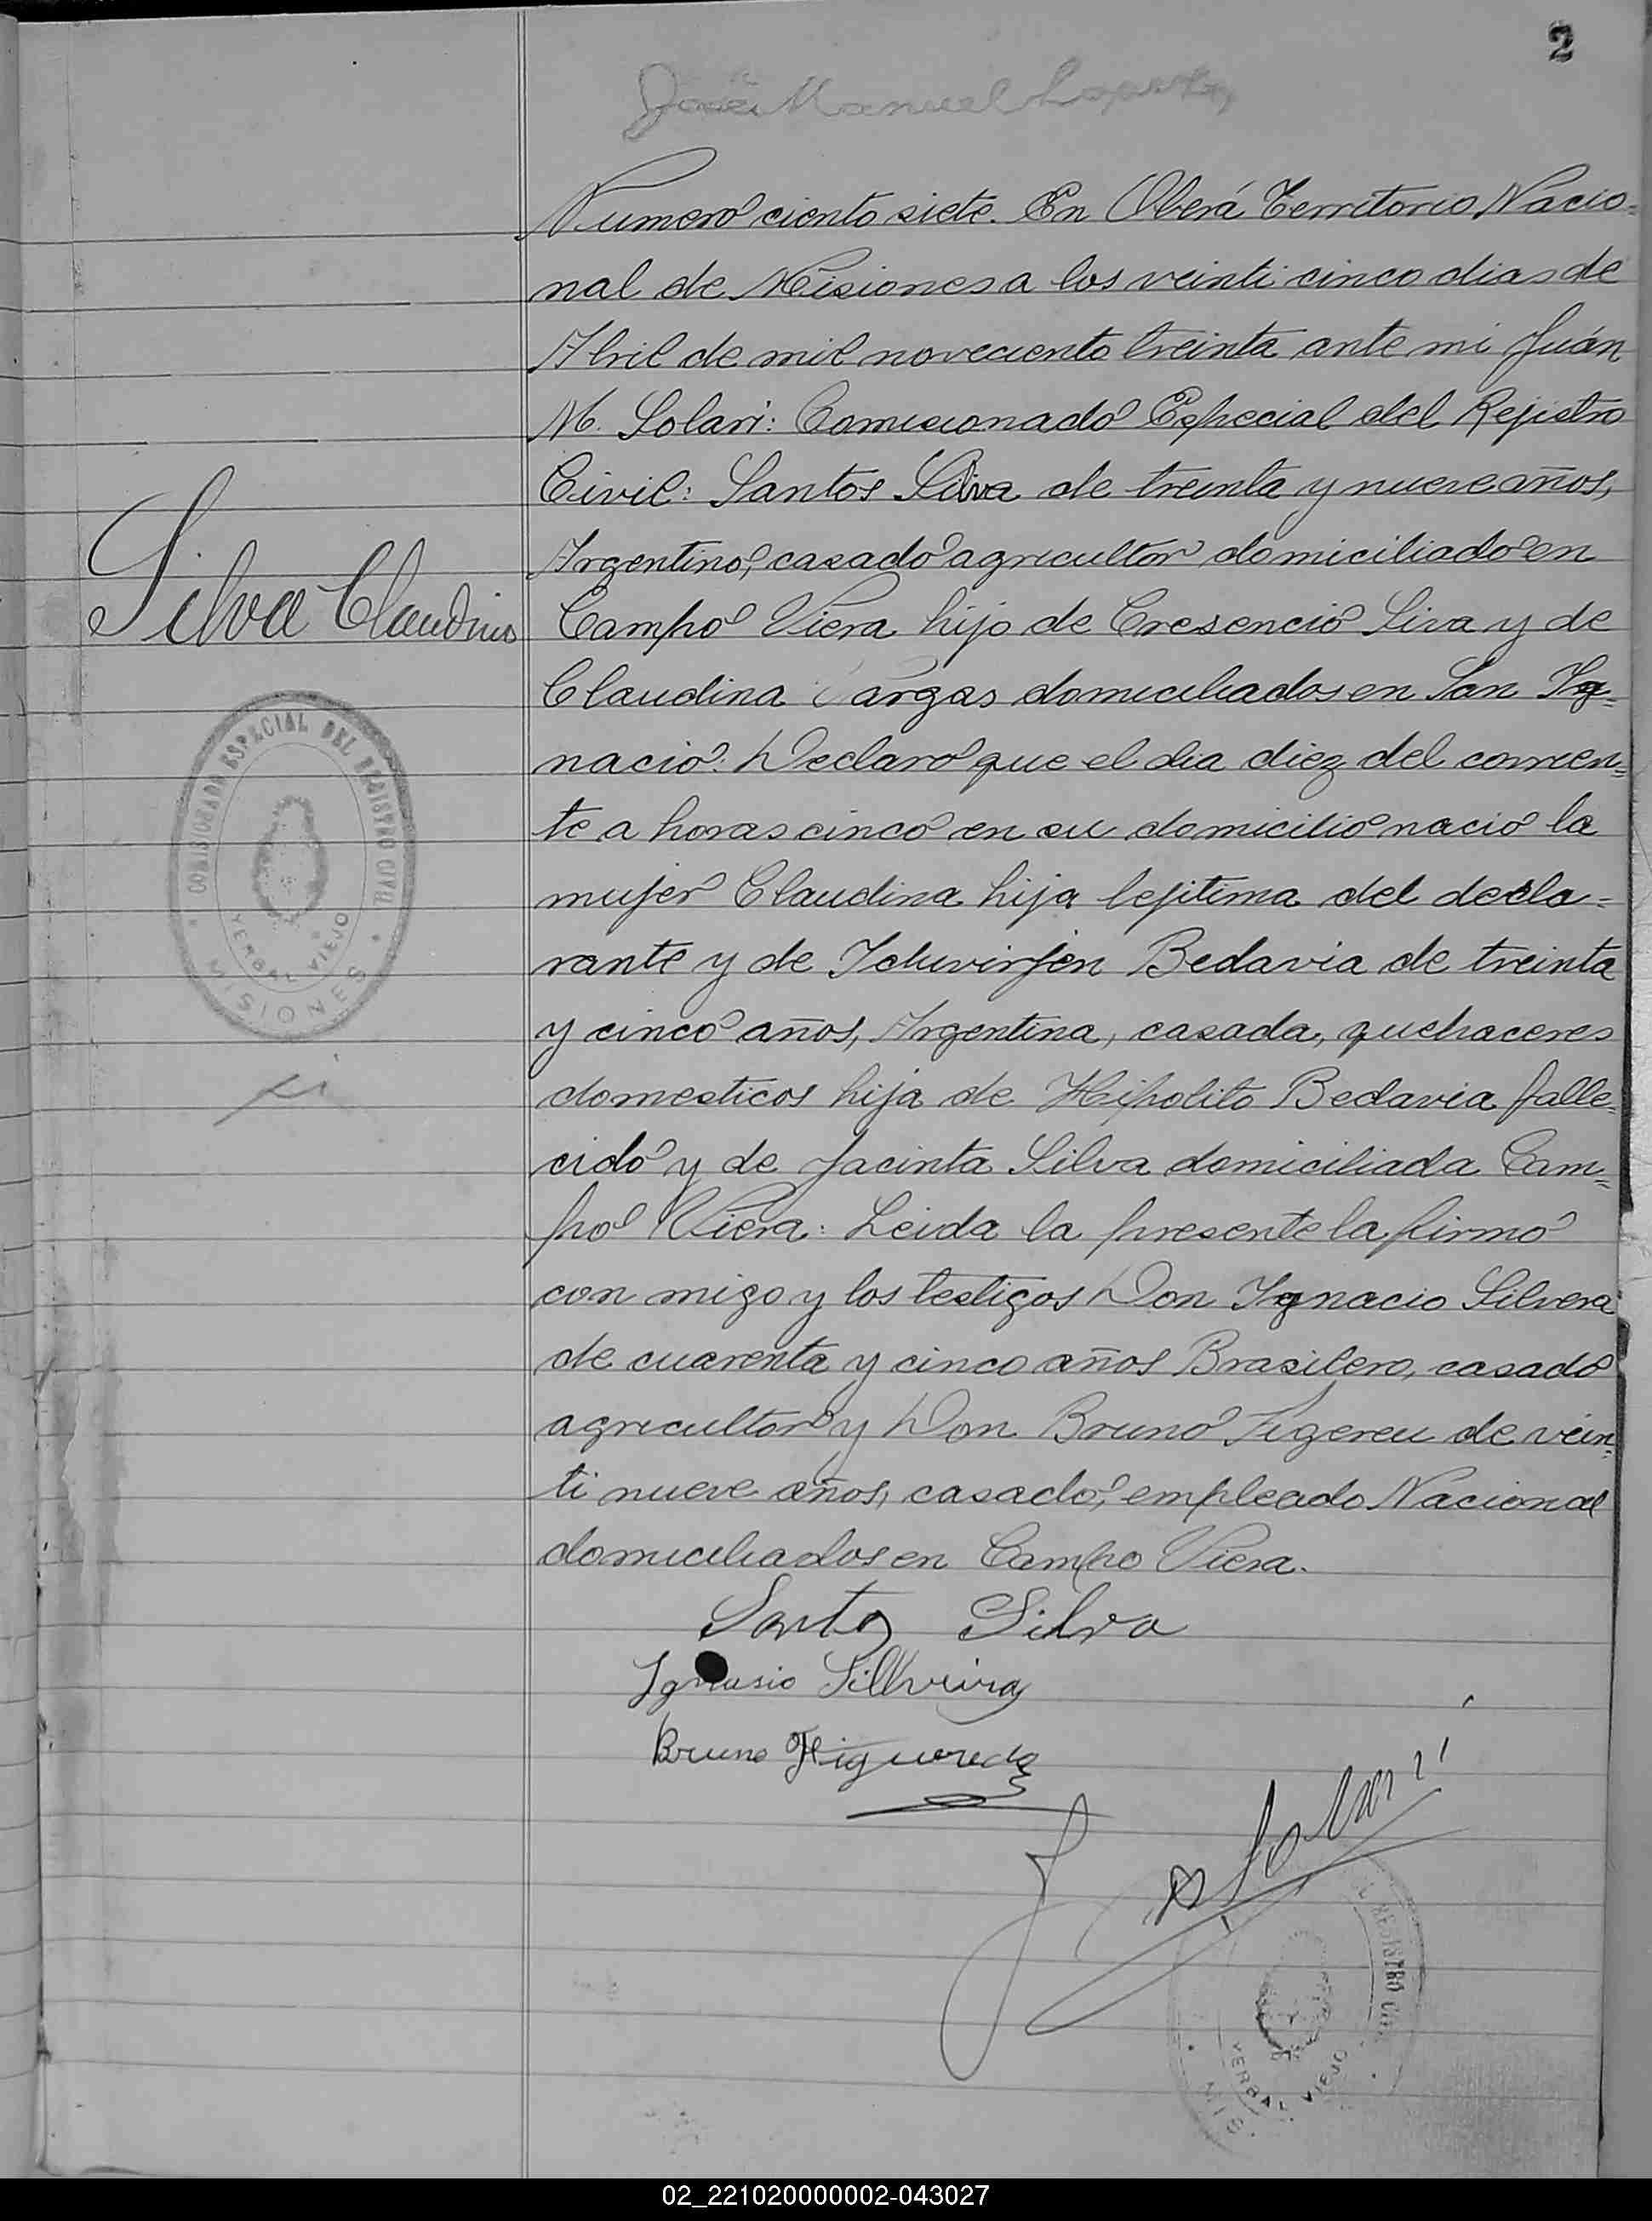 2
José Manuel
Numero ciento siete. En Oberá Territorio Nacio=
nal de Misiones a los veinti cinco dias de
Abril de mil noveciento treinta ante mi Juán
M. Solari: Comisionado Especial del Rejistro
Civil: Santos Silva de treinta y nueve años,
Argentino, casado agricultor domiciliado en
Silva Claudina
Campo Viera hijo de Cresencio Siva y de
Claudina Vargas domiciliados en San Ig=
nacio: Declaro que el dia diez del corrien=
te a horas cinco en su domicilio nació la
mujer Claudina hija lejitima del decla=
rante y de Bedavia de treinta
y cinco años, Argentina, casada, quehaceres
domesticos hija de Hipolito Bedavia falle=
cido y de Jacinta Silva domiciliada Cam=
po Viera: Leida la presente la firmó
con migo y los testigos Don Ignacio Silvera
de cuarenta y cinco años Brasilero, casado
agricultor y Don Bruno Figereu de vein=
ti nueve años, casado, empleado Nacional
domiciliados en Campo Viera.
COMISIONADO ESPECIAL DEL REGISTRO CIVIL
YERBAL VIEJO
MISIONES
Santos Silva
Silhveira
Bruno Figueredo
J M Solari
REGISTRO
YERBAL VIEJO
MIS
02_221020000002-043027